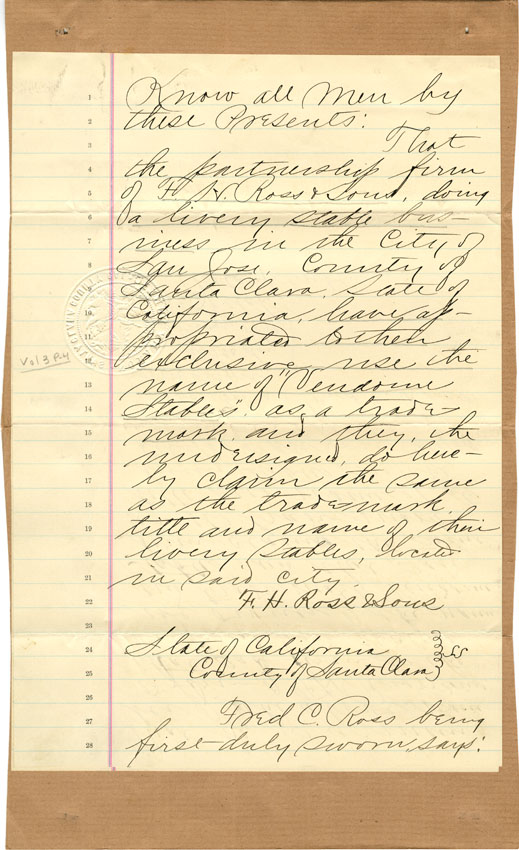 Know all Men by
these Presents:
That
the partnership firm
of F. H. Ross & Sons, doing
a livery stable bus-
iness in the City of
San Jose, County of
Santa Clara, State of
California, have ap-
propriated to their
exclusive use the
name of "Vendome
Stables" as a trade
mark, and they, the
undersigned, do here-
by claim the same
as the trademark
title and name of their
livery stables, located
in said city.
F. H. Ross & Sons
State of California
County of Santa Clara } ss
Fred C. Ross being
first duly sworn, says:
Vol 3 P.4
1
2
3
4
5
6
7
8
9
10
11
12
13
14
15
16
17
18
19
20
21
22
23
24
25
26
27
28